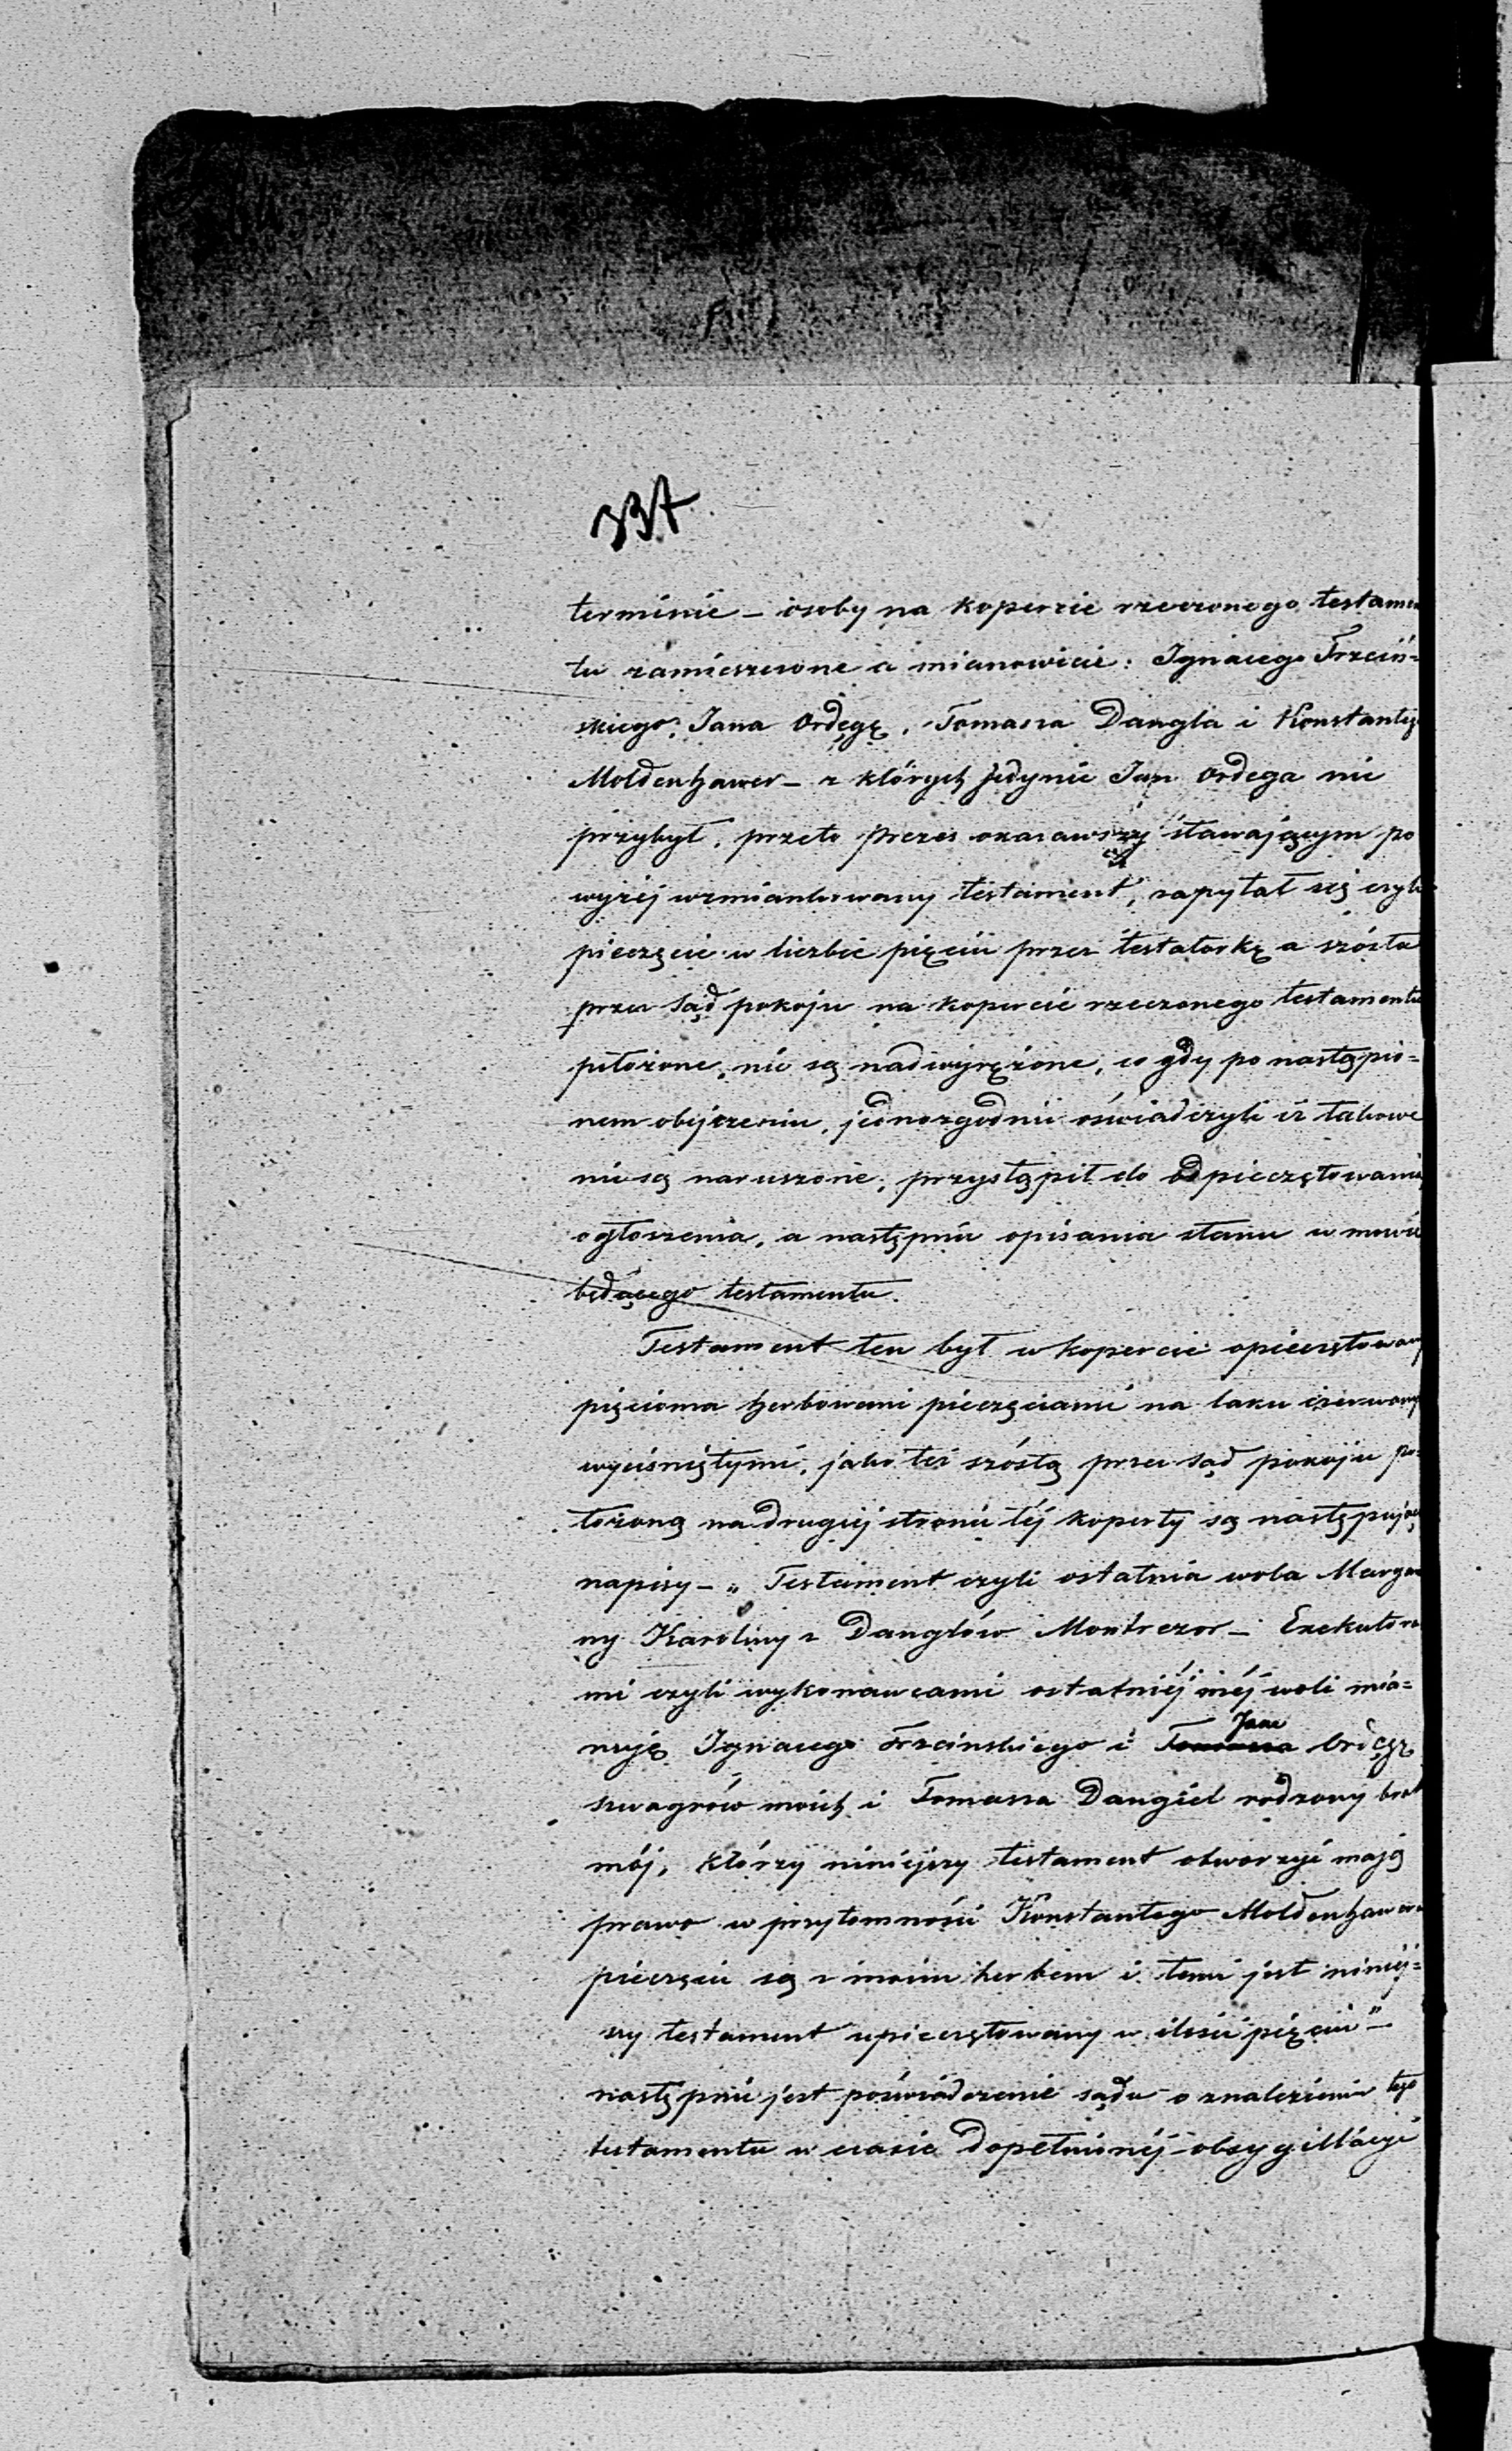 337
terminie – osoby na kopercie rzeczonego testamen
tu zamieszczone a mianowicie: Ignacego Trzciń-
skiego, Jana Ordęgę, Tomasza Dangla i Konstantego
Moldenhawer – z których jedynie Jan Ordęga nie
przybył, przeto Prezes okazawszy stawającym po
wyżej wzmiankowany testament, zapytał się czyli
pieczęcie w liczbie pięciu przez testatorkę a szósta
przez Sąd pokoju na kopercie rzeczonego testamentu
położone, nie są nadwyrężone, co gdy po nastąpio-
nem obejrzeniu, jednozgodnie oświadczyli iż takowe
nie są naruszone, przystąpił do odpieczętowania,
ogłoszenia, a następnie opisania stanu w mowie
będącego testamentu.
Testament ten był w kopercie opieczętowany
pięcioma herbowemi pieczęciami na laku czerwonym
wyciśniętymi, jako też szóstą przez Sąd pokoju po-
łożoną na drugiej stronie téj koperty są następujące
napisy – „Testament czyli ostatnia wola Maryan
ny Karoliny z Danglów Montrezor – Exekutora
mi czyli wykonawcami ostatniéj méj woli mia-
nuję Ignacego Trzcinskiego i Tomasza Jana Ordęgę
szwagrów moich i Tomasza Dangiel rodzony brat
mój, którzy niniejszy testament otworzyć mają
prawo w przytomności Konstantego Moldenhawera
pieczęcie są z moim herbem i temi jest niniej-
szy testament upieczętowany w ilości pięciu" –
następnie jest poświadczenie sądu o znalezieniu tego
testamentu w czasie dopełnionéj obsygillacyi